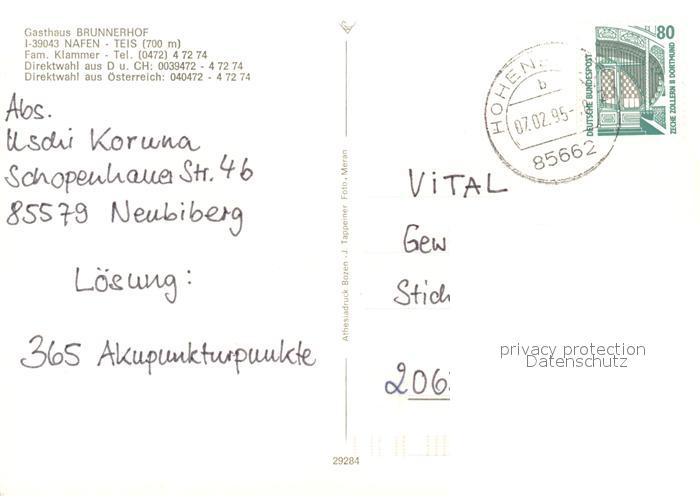 Gasthaus BRUNNERHOF
I-39043 NAFEN - TEIS (700 m)
Fam. Klammer - Tel. (0472) 4 72 74
Direktwahl aus D u. CH: 0039472 - 4 72 74
Direktwahl aus Österreich: 040472 - 4 72 74
Abs.
Uschi Koruna
Schopenhauer Str. 46
85579 Neubiberg
Lösung:
365 Akupunkturpunkte
Athesiadruck Bozen - J. Tappeiner Foto, Meran
29284
80
DEUTSCHE BUNDESPOST
ZECHE ZOLLERN II DORTMUND
HOHEN
b
07.02.95
85662
ViTAL
Gew
Stich
206
privacy protection
Datenschutz